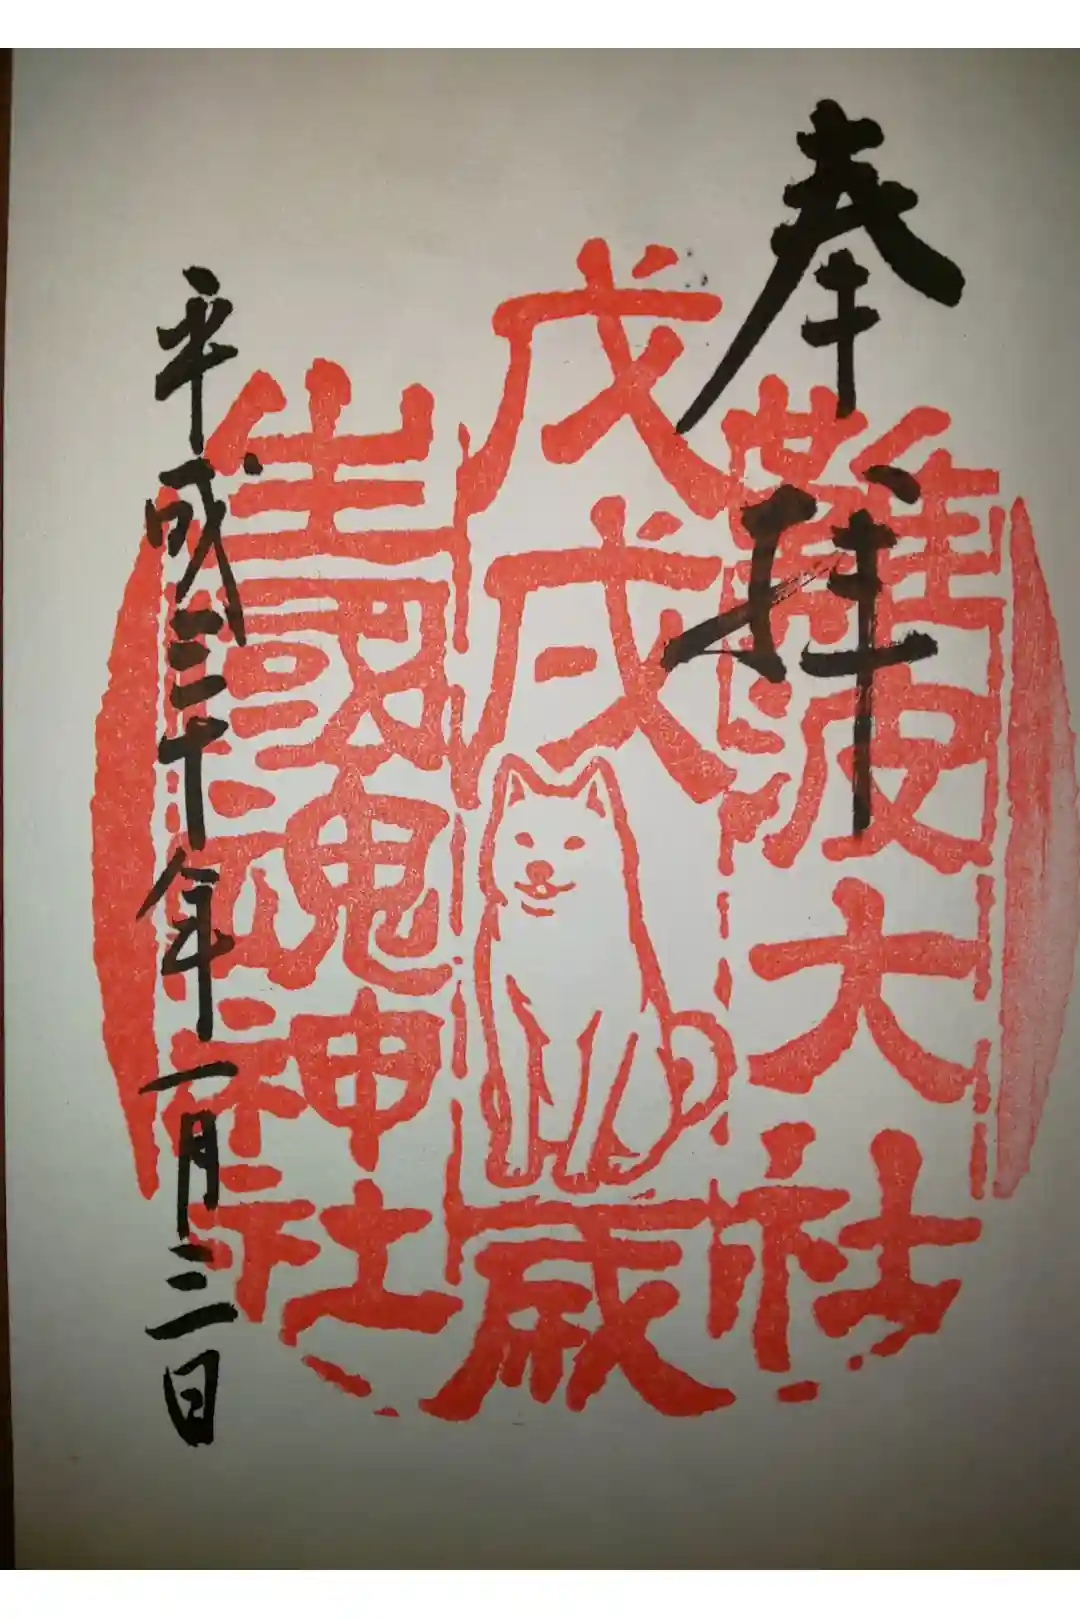 奉拝
難波大社
戊戌歳
生國魂神社
平成三十年一月三日